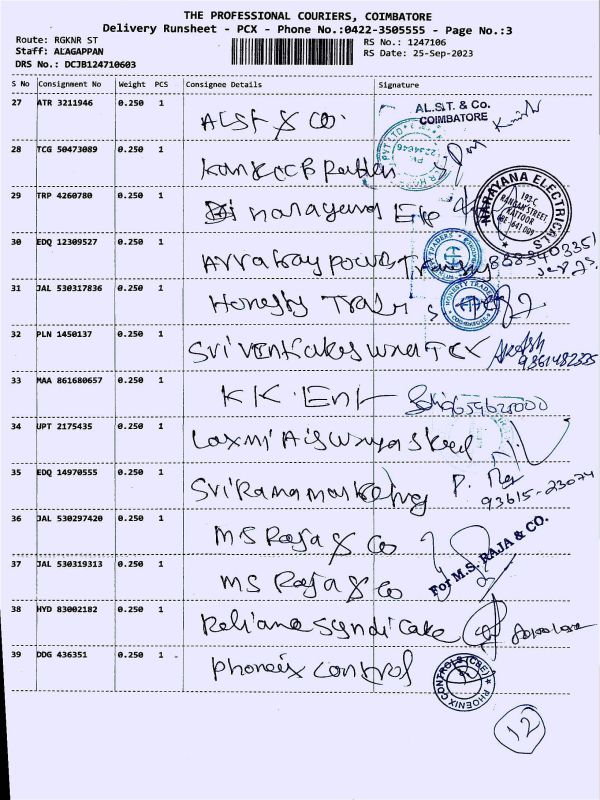 THE PROFESSIONAL COURIERS, COIMBATORE
Delivery Runsheet - PCX - Phone No.:0422-3505555 - Page No.:3
Route: RGKNR ST
RS No.: 1247106
Staff: ALAGAPPAN
RS Date: 25-Sep-2023
DRS No.: DCJB124710603
S No Consignment No Weight PCS Consignee Details Signature
27 ATR 3211946 0.250 1 ALST & Co. AL.ST. & Co. COIMBATORE
28 TCG 50473089 0.250 1
29 TRP 4260780 0.250 1 narayana NARAYANA ELECTRICALS 193-C RANGAN STREET KATTOOR CBE-641 009
30 EDQ 12309527 0.250 1
31 JAL 530317836 0.250 1 Honesty HONESTY TRADERS COIMBATORE
32 PLN 1450137 0.250 1 Akash 9361482335
33 MAA 861680657 0.250 1 KK. Ent
34 UPT 2175435 0.250 1 Laxmi
35 EDQ 14970555 0.250 1 Sri Rama marketing P. 93615-23074
36 JAL 530297420 0.250 1 MS Raja & Co
37 JAL 530319313 0.250 1 MS Raja & Co For M.S. RAJA & CO.
38 HYD 83002182 0.250 1 Syndicate
39 DDG 436351 0.250 1 Phoneix Control PHOENIX CONTROLS (CBE)
12